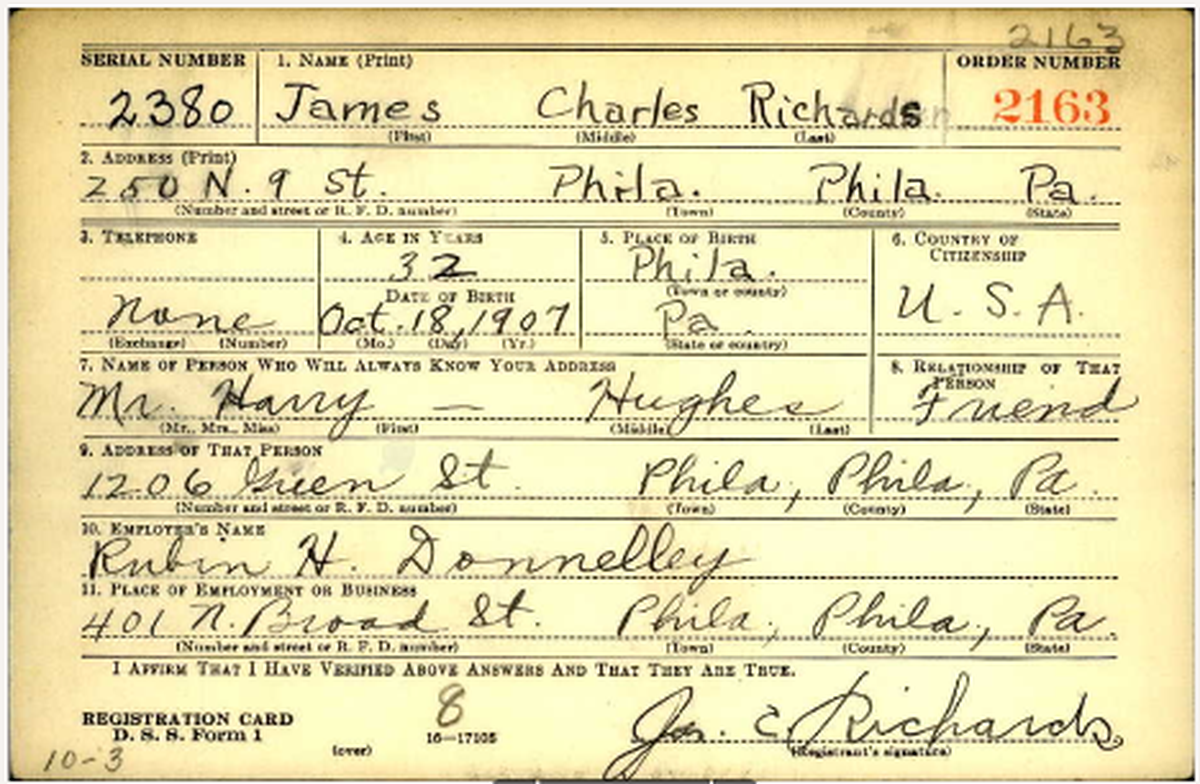 2163
SERIAL NUMBER 1. NAME (Print) ORDER NUMBER
2380 James Charles Richards 2163
(First) (Middle) (Last)
2. ADDRESS (Print)
250 N. 9 St. Phila. Phila. Pa.
(Number and street or R. F. D. number) (Town) (County) (State)
3. TELEPHONE 4. AGE IN YEARS 5. PLACE OF BIRTH 6. COUNTRY OF CITIZENSHIP
32 Phila.
DATE OF BIRTH (Town or county)
None Oct. 18, 1907 Pa. U. S. A.
(Exchange) (Number) (Mo.) (Day) (Yr.) (State or country)
7. NAME OF PERSON WHO WILL ALWAYS KNOW YOUR ADDRESS 8. RELATIONSHIP OF THAT PERSON
Mr. Harry — Hughes Friend
(Mr., Mrs., Miss) (First) (Middle) (Last)
9. ADDRESS OF THAT PERSON
1206 Green St. Phila, Phila, Pa.
(Number and street or R. F. D. number) (Town) (County) (State)
10. EMPLOYER'S NAME
Rubin H. Donnelley
11. PLACE OF EMPLOYMENT OR BUSINESS
401 N. Broad St. Phila, Phila, Pa.
(Number and street or R. F. D. number) (Town) (County) (State)
I AFFIRM THAT I HAVE VERIFIED ABOVE ANSWERS AND THAT THEY ARE TRUE.
REGISTRATION CARD 8 Jas. C. Richards
D. S. S. Form 1 16—17105
(over) (Registrant's signature)
10-3